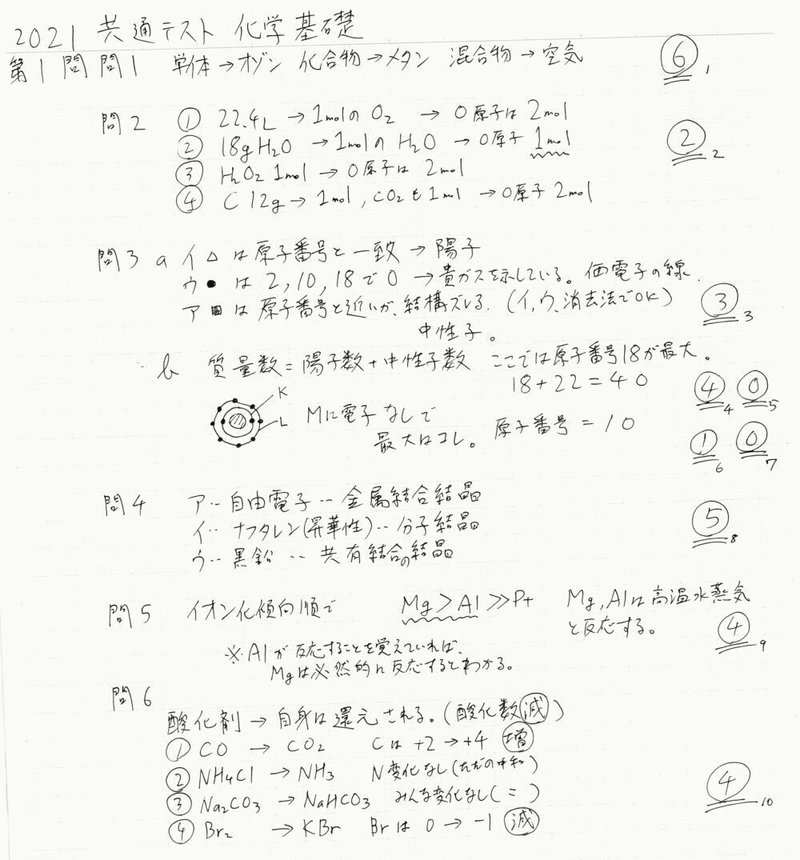 2021 共通テスト 化学基礎
第1問 問1 単体→オゾン 化合物→メタン 混合物→空気 ⑥ 1
問2 ① 22.4L →1molの O₂ → O原子は 2mol
② 18g H₂O →1molの H₂O → O原子 1mol ② 2
③ H₂O₂ 1mol → O原子は 2mol
④ C 12g → 1mol, CO₂も1mol → O原子 2mol
問3 a イ △ は原子番号と一致 → 陽子
ウ ● は 2, 10, 18 で 0 → 貴ガスを示している。価電子の線.
ア ■ は 原子番号と近いが、結構ズレる. (イ,ウ、消去法でOK) ③ 3
中性子。
b 質量数=陽子数+中性子数 ここでは原子番号18が最大。
18+22=40 ④ 4 ⓪ 5
K
L Mに電子なしで
最大はコレ。 原子番号=10 ① 6 ⓪ 7
問4 ア‥自由電子‥金属結合結晶
イ‥ナフタレン(昇華性)‥分子結晶 ⑤ 8
ウ‥黒鉛‥共有結合の結晶
問5 イオン化傾向順で Mg>Al≫Pt Mg,Alは高温水蒸気
と反応する。 ④ 9
※Alが反応することを覚えていれば、
Mgは必然的に反応するとわかる。
問6
酸化剤→自身は還元される。(酸化数減)
① CO → CO₂ Cは +2→+4 増
② NH₄Cl → NH₃ N変化なし(ただの中和)
③ Na₂CO₃ → NaHCO₃ みんな変化なし( = ) ④ 10
④ Br₂ → KBr Brは 0 → -1 減